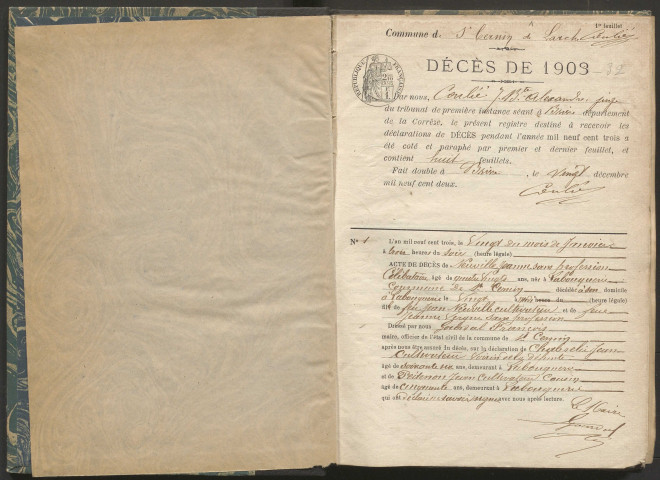 1er feuillet
Commune de St Cernin de Larche
DÉCÈS DE 1903
RÉPUBLIQUE FRANÇAISE
Par nous, Coulié J. Bte Alexandre, juge
du tribunal de première instance séant à Brive département
de la Corrèze, le présent registre destiné à recevoir les
déclarations de DÉCÈS pendant l'année mil neuf cent trois a
été coté et paraphé par premier et dernier feuillet, et
contient huit feuillets.
Fait double à Brive, le vingt décembre
mil neuf cent deux.
Coulié
No 1
L'an mil neuf cent trois, le vingt du mois de Janvier
à trois heures du soir (heure légale)
ACTE DE DÉCÈS de Neuville Jeanne sans profession
Célibataire, âgé de quatre vingts ans, née à
Commune de St Cernin, décédée à son domicile
à le vingt heures du (heure légale)
fille de feu Jean Neuville cultivateur et de feue
Jeanne sans profession
Dressé par nous François
maire, officier de l'état civil de la commune de St Cernin
après nous être assuré du décès, sur la déclaration de Jean
Cultivateur voisin de la défunte
âgé de soixante six ans, demeurant à
et de Jean Cultivateur
âgé de cinquante ans, demeurant à
qui ont déclaré savoir signer avec nous après lecture.
Le Maire